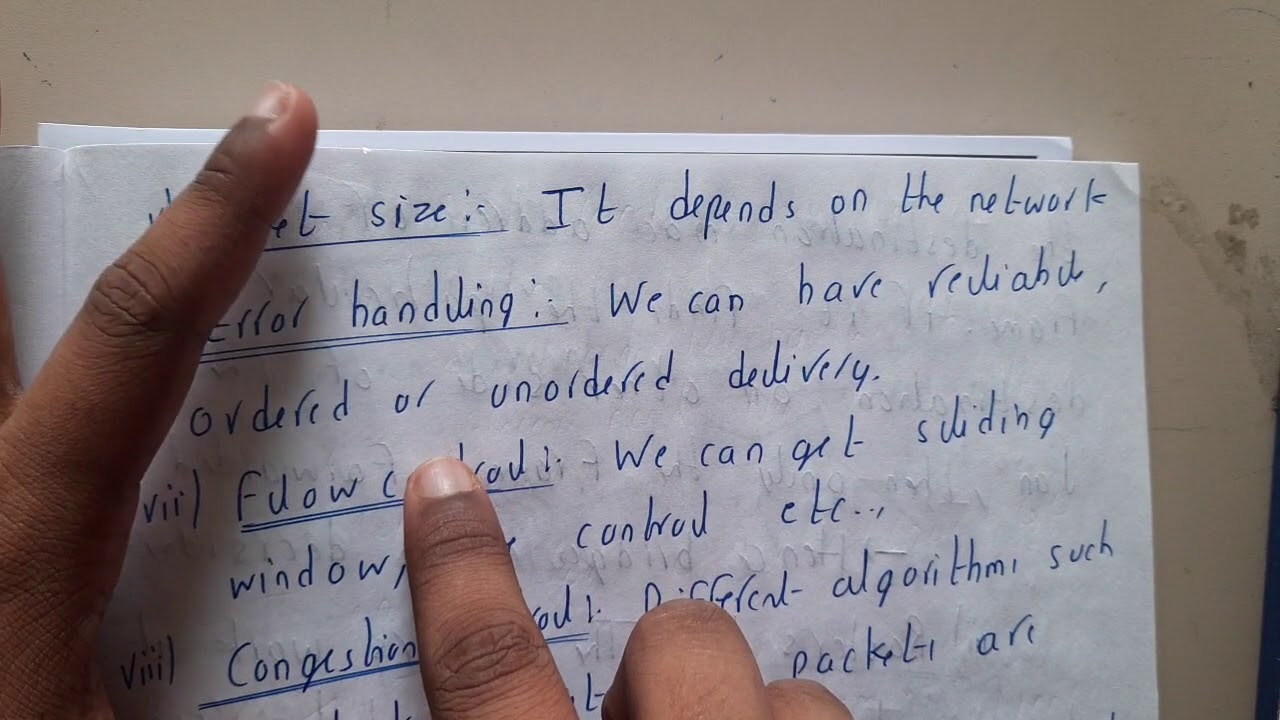 size:- It depends on the network
Error handling:- We can have reliable,
ordered or unordered delivery.
vii) Flow We can get sliding
window, control etc..,
viii) Congestion Different algorithms such
packets are